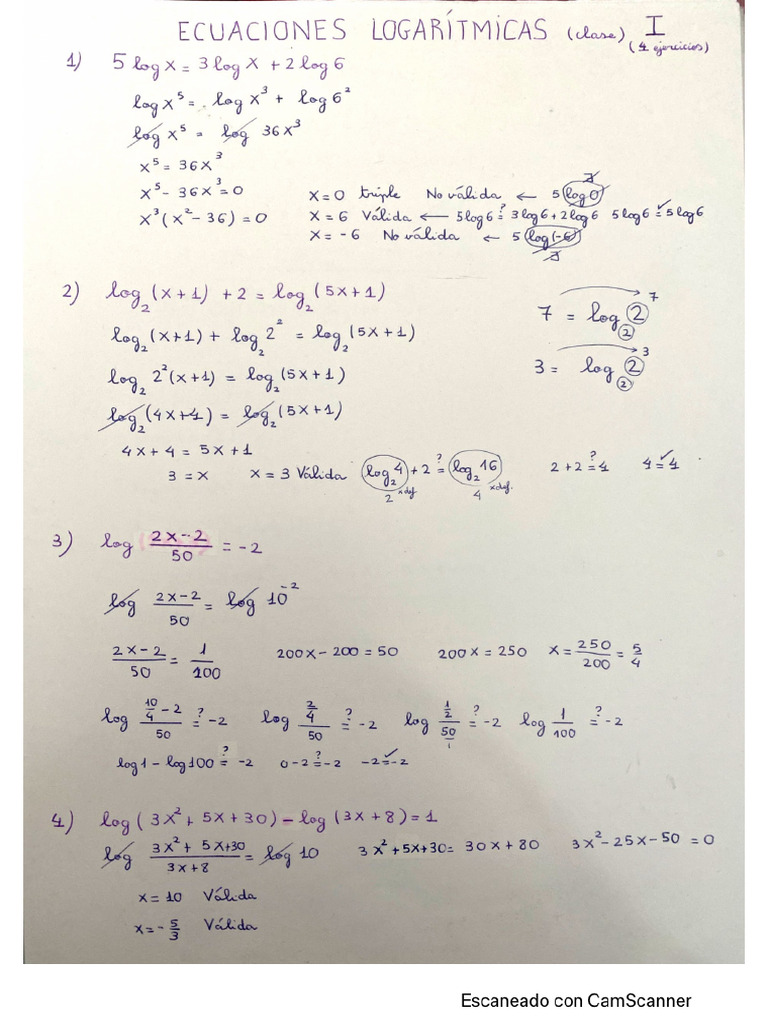 ECUACIONES LOGARÍTMICAS (clase) I
(4 ejercicios)
1) 5 log x = 3 log x + 2 log 6
log x⁵ = log x³ + log 6²
log x⁵ = log 36x³
x⁵ = 36x³
x⁵ - 36x³ = 0 x = 0 triple No válida ← 5 log 0 ∄
x³(x² - 36) = 0 x = 6 Válida ← 5 log 6 =? 3 log 6 + 2 log 6 5 log 6 =✓ 5 log 6
x = -6 No válida ← 5 log(-6) ∄
2) log₂(x+1) + 2 = log₂(5x+1)
log₂(x+1) + log₂ 2² = log₂(5x+1) 7 = log₂ 2⁷
log₂ 2²(x+1) = log₂(5x+1) 3 = log₂ 2³
log₂(4x+4) = log₂(5x+1)
4x + 4 = 5x + 1
3 = x x = 3 Válida log₂ 4 + 2 =? log₂ 16 2 + 2 =? 4 4 =✓ 4
2 x def. 4 x def.
3) log (2x-2)/50 = -2
log (2x-2)/50 = log 10⁻²
(2x-2)/50 = 1/100 200x - 200 = 50 200x = 250 x = 250/200 = 5/4
log (10/4 - 2)/50 =? -2 log (2/4)/50 =? -2 log (1/2)/(50/1) =? -2 log 1/100 =? -2
log 1 - log 100 =? -2 0 - 2 =? -2 -2 =✓ -2
4) log(3x² + 5x + 30) - log(3x + 8) = 1
log (3x² + 5x+30)/(3x+8) = log 10 3x² + 5x + 30 = 30x + 80 3x² - 25x - 50 = 0
x = 10 Válida
x = -5/3 Válida
Escaneado con CamScanner